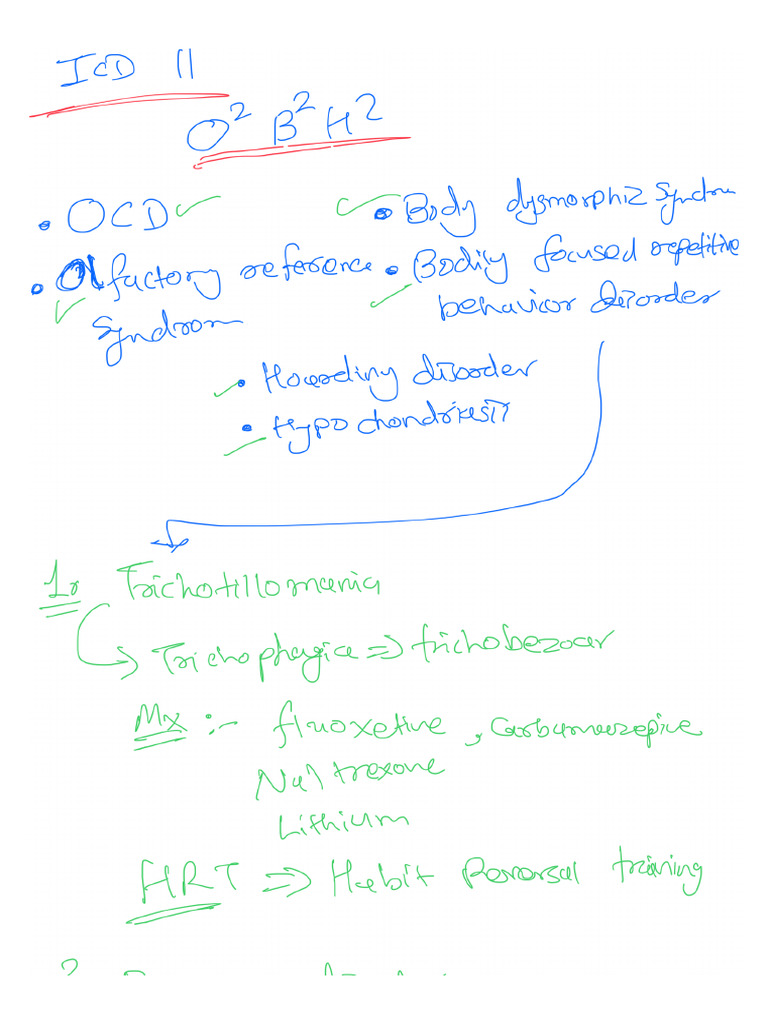 ICD 11
O² B² H²
• OCD
• Olfactory reference
Syndrom
• Body dysmorphiz Syndrom
• Bodily focused repetitive
behavior disorder
• Hoarding disorder
• Hypochondriasis
1. Trichotillomania
Trichophagia ⇒ trichobezoar
Mx :- fluoxetine, Carbamezepine
Naltrexone
Lithium
HRT ⇒ Habit Reversal training
2